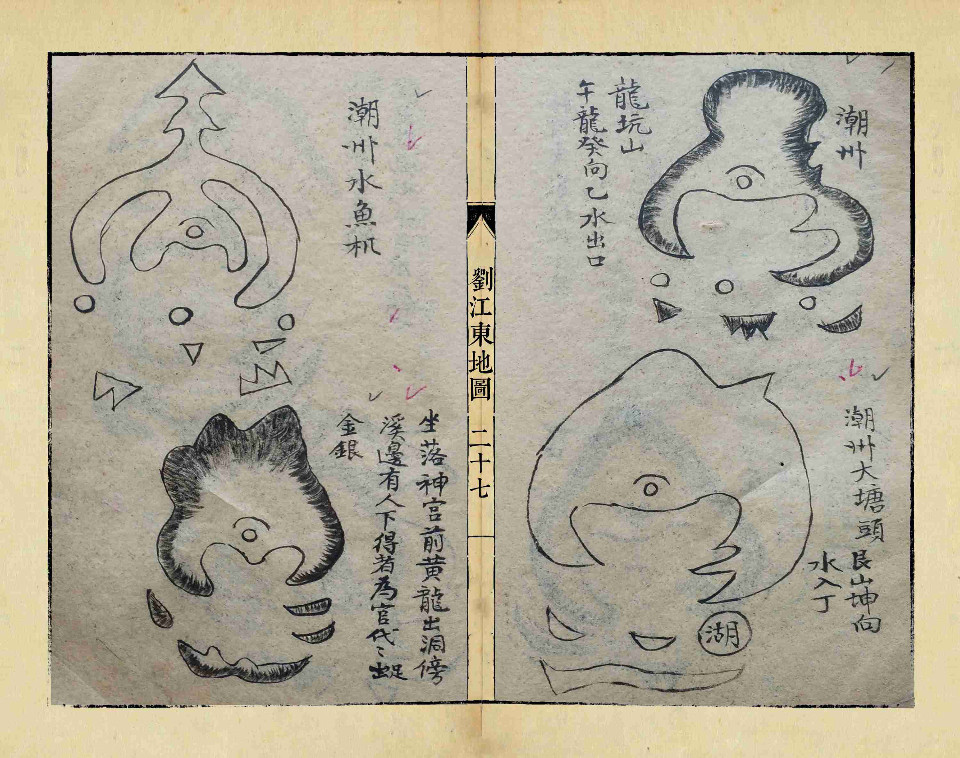 潮州
龍坑山
午龍癸向乙水出口
潮州大塘頭艮山坤向
水入丁
湖
劉江東地圖
二十七
潮州水魚机
坐落神宫前黄龍出洞傍
溪邊有人下得者為官代〻出足
金銀